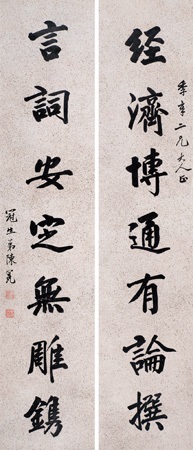 經濟博通有論撰
季二兄大人正
言詞安定無雕鐫
冠生弟陳冕